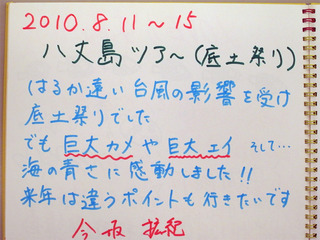 2010.8.11〜15
八丈島ツアー(底土祭り)
はるか遠い台風の影響を受け
底土祭りでした
でも巨大カメや巨大エイ そして…
海の青さに感動しました!!
来年は違うポイントも行きたいです
今